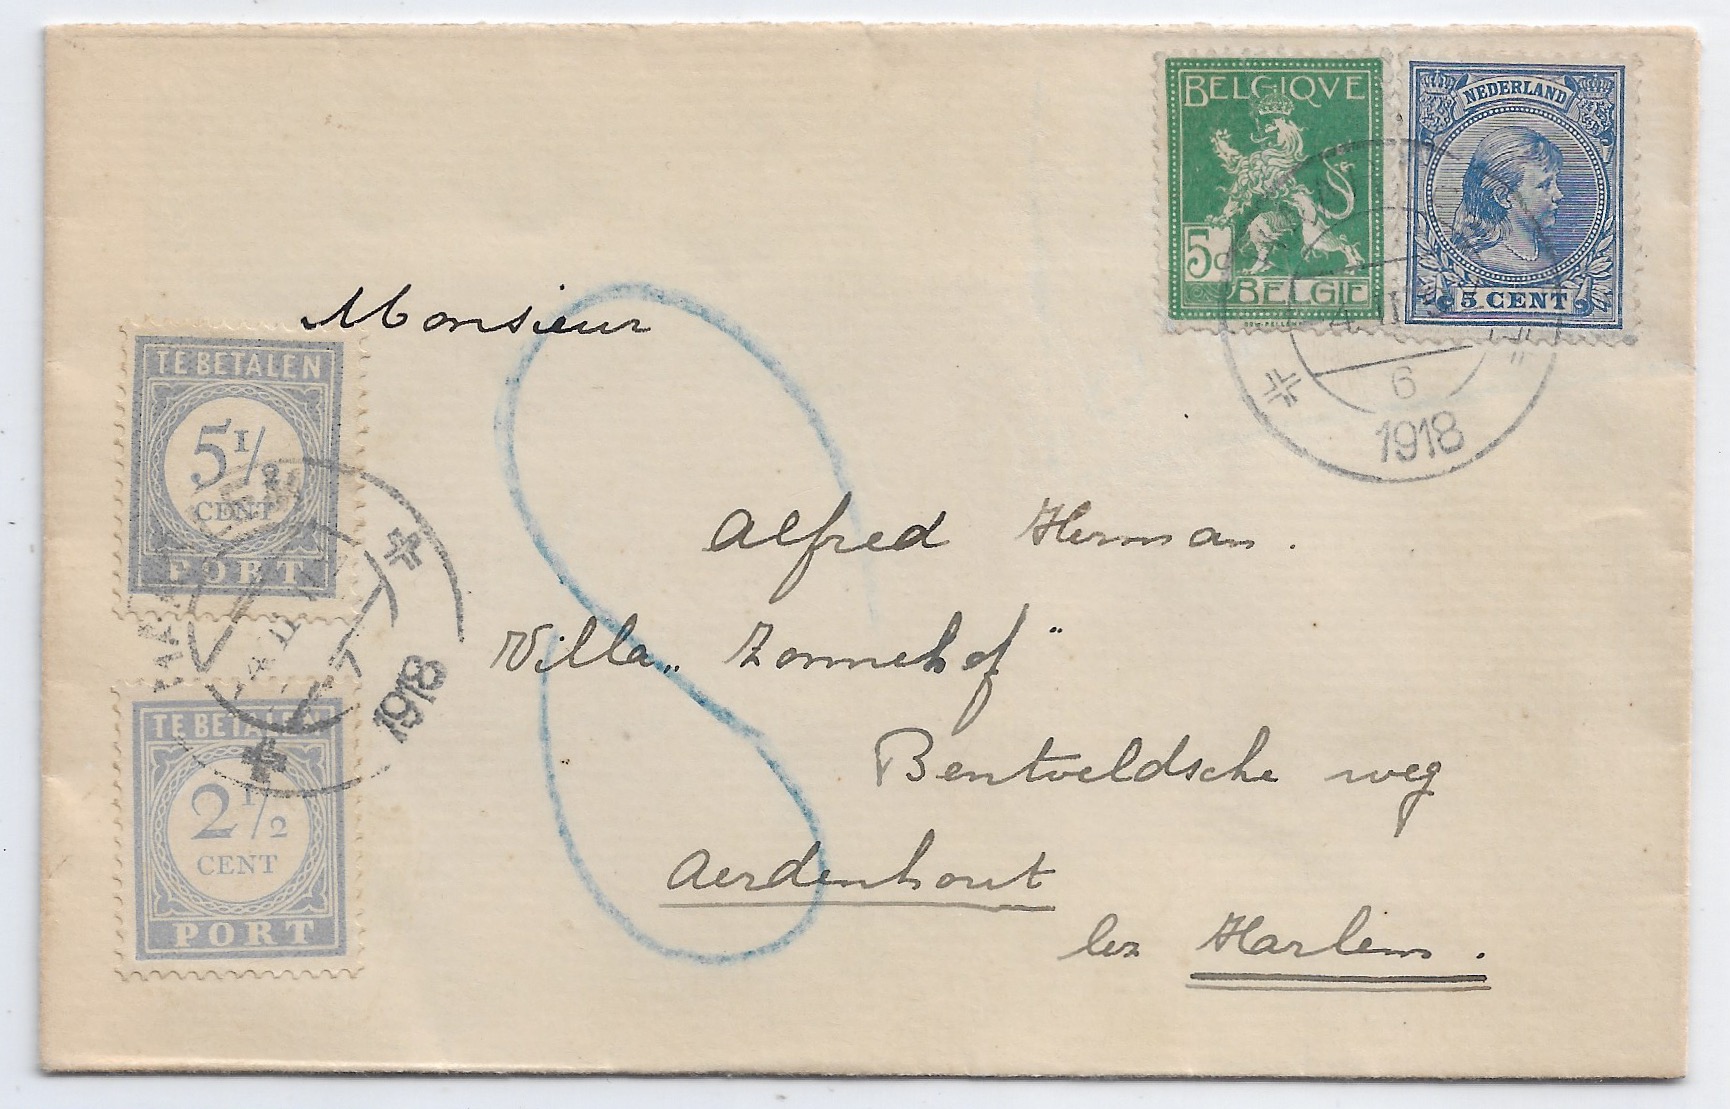 BELGIQVE
5c
BELGIE
NEDERLAND
5 CENT
II
6
1918
Monsieur
TE BETALEN
5 1/2
CENT
PORT
1918
TE BETALEN
2 1/2
CENT
PORT
8
Alfred Herman.
Villa „Zonnehof"
Bentveldsche weg
Aerdenhout
lez Harlem.